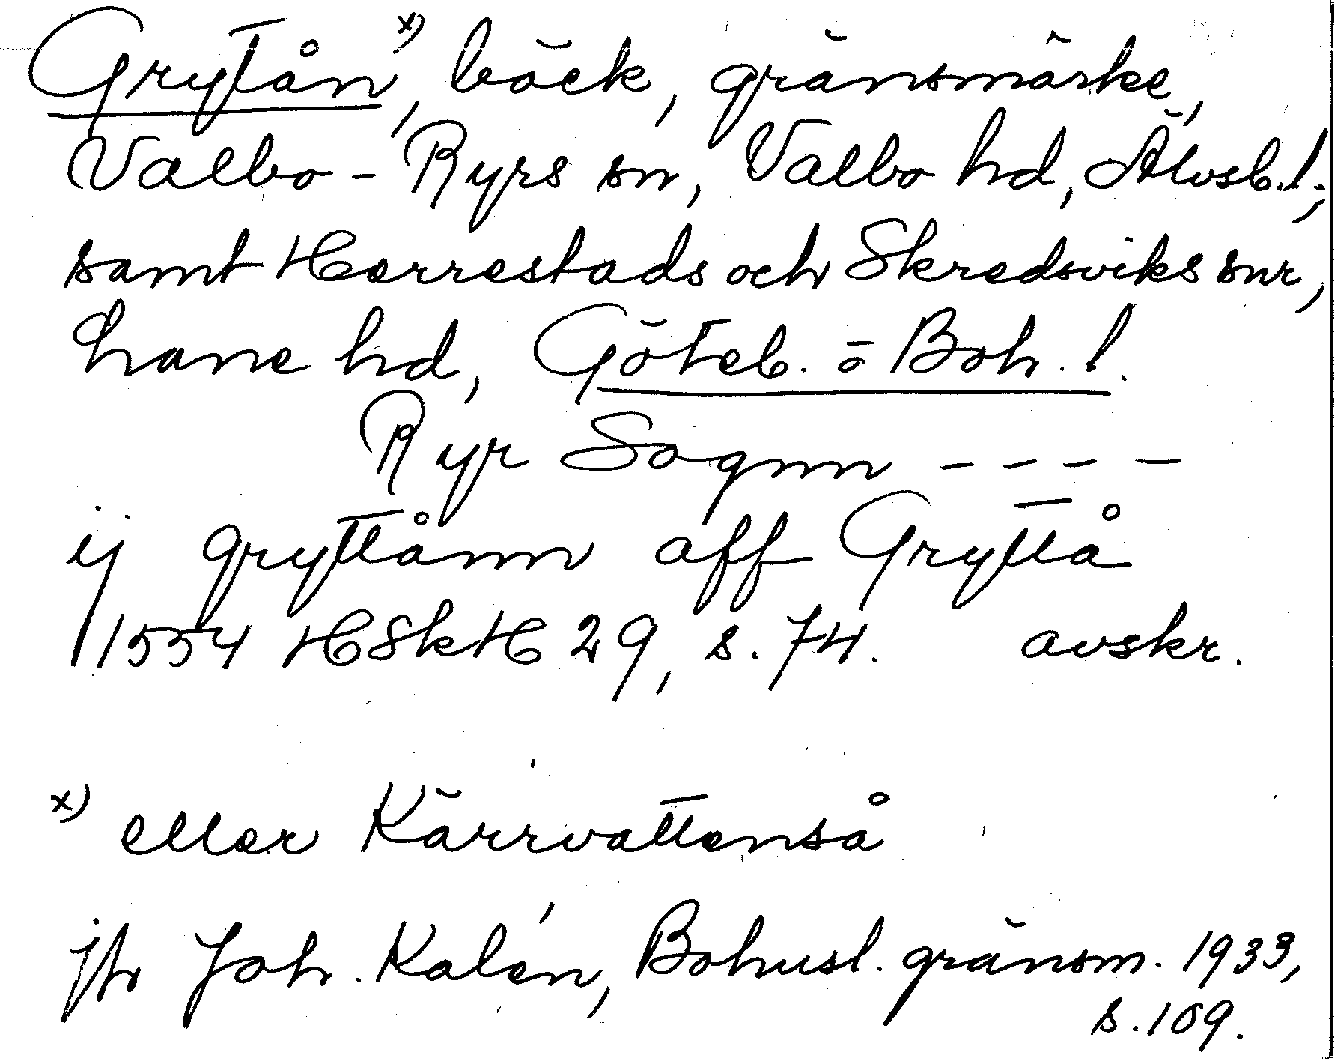 Grytån x), bäck, gränsmärke,
Valbo-Ryrs sn, Valbo hd, Älvsb.l;
samt Herrestads och Skredsviks snr,
Lane hd, Göteb. o Boh. l.
Ryr Sognn - - - -
ij gryttånn aff Gryttå
1554 HSkH 29, s. 74. avskr.
x) eller Kärrvattenså
jfr Joh. Kalén, Bohusl. gränsm. 1933,
s. 109.